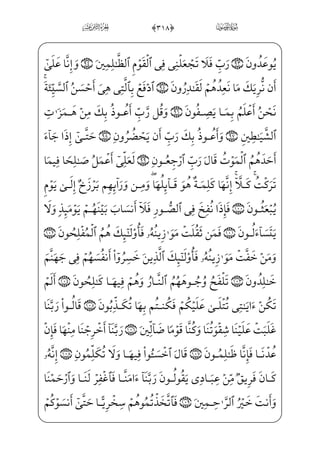 ﴿٣١٨﴾
يُوعَدُونَ ۝٩٣ رَبِّ فَلَا تَجْعَلْنِى فِى ٱلْقَوْمِ ٱلظَّـٰلِمِينَ ۝٩٤ وَإِنَّا عَلَىٰٓ
أَن نُّرِيَكَ مَا نَعِدُهُمْ لَقَـٰدِرُونَ ۝٩٥ ٱدْفَعْ بِٱلَّتِى هِىَ أَحْسَنُ ٱلسَّيِّئَةَ ۚ
نَحْنُ أَعْلَمُ بِمَا يَصِفُونَ ۝٩٦ وَقُل رَّبِّ أَعُوذُ بِكَ مِنْ هَمَزَٰتِ
ٱلشَّيَـٰطِينِ ۝٩٧ وَأَعُوذُ بِكَ رَبِّ أَن يَحْضُرُونِ ۝٩٨ حَتَّىٰٓ إِذَا جَآءَ
أَحَدَهُمُ ٱلْمَوْتُ قَالَ رَبِّ ٱرْجِعُونِ ۝٩٩ لَعَلِّىٓ أَعْمَلُ صَـٰلِحًا فِيمَا
تَرَكْتُ ۚ كَلَّآ ۚ إِنَّهَا كَلِمَةٌ هُوَ قَآئِلُهَا ۖ وَمِن وَرَآئِهِم بَرْزَخٌ إِلَىٰ يَوْمِ
يُبْعَثُونَ ۝١٠٠ فَإِذَا نُفِخَ فِى ٱلصُّورِ فَلَآ أَنسَابَ بَيْنَهُمْ يَوْمَئِذٍ وَلَا
يَتَسَآءَلُونَ ۝١٠١ فَمَن ثَقُلَتْ مَوَٰزِينُهُۥ فَأُو۟لَـٰٓئِكَ هُمُ ٱلْمُفْلِحُونَ ۝١٠٢
وَمَنْ خَفَّتْ مَوَٰزِينُهُۥ فَأُو۟لَـٰٓئِكَ ٱلَّذِينَ خَسِرُوٓا۟ أَنفُسَهُمْ فِى جَهَنَّمَ
خَـٰلِدُونَ ۝١٠٣ تَلْفَحُ وُجُوهَهُمُ ٱلنَّارُ وَهُمْ فِيهَا كَـٰلِحُونَ ۝١٠٤ أَلَمْ
تَكُنْ ءَايَـٰتِى تُتْلَىٰ عَلَيْكُمْ فَكُنتُم بِهَا تُكَذِّبُونَ ۝١٠٥ قَالُوا۟ رَبَّنَا
غَلَبَتْ عَلَيْنَا شِقْوَتُنَا وَكُنَّا قَوْمًا ضَآلِّينَ ۝١٠٦ رَبَّنَآ أَخْرِجْنَا مِنْهَا فَإِنْ
عُدْنَا فَإِنَّا ظَـٰلِمُونَ ۝١٠٧ قَالَ ٱخْسَـُٔوا۟ فِيهَا وَلَا تُكَلِّمُونِ ۝١٠٨ إِنَّهُۥ
كَانَ فَرِيقٌ مِّنْ عِبَادِى يَقُولُونَ رَبَّنَآ ءَامَنَّا فَٱغْفِرْ لَنَا وَٱرْحَمْنَا
وَأَنتَ خَيْرُ ٱلرَّٰحِمِينَ ۝١٠٩ فَٱتَّخَذْتُمُوهُمْ سِخْرِيًّا حَتَّىٰٓ أَنسَوْكُمْ